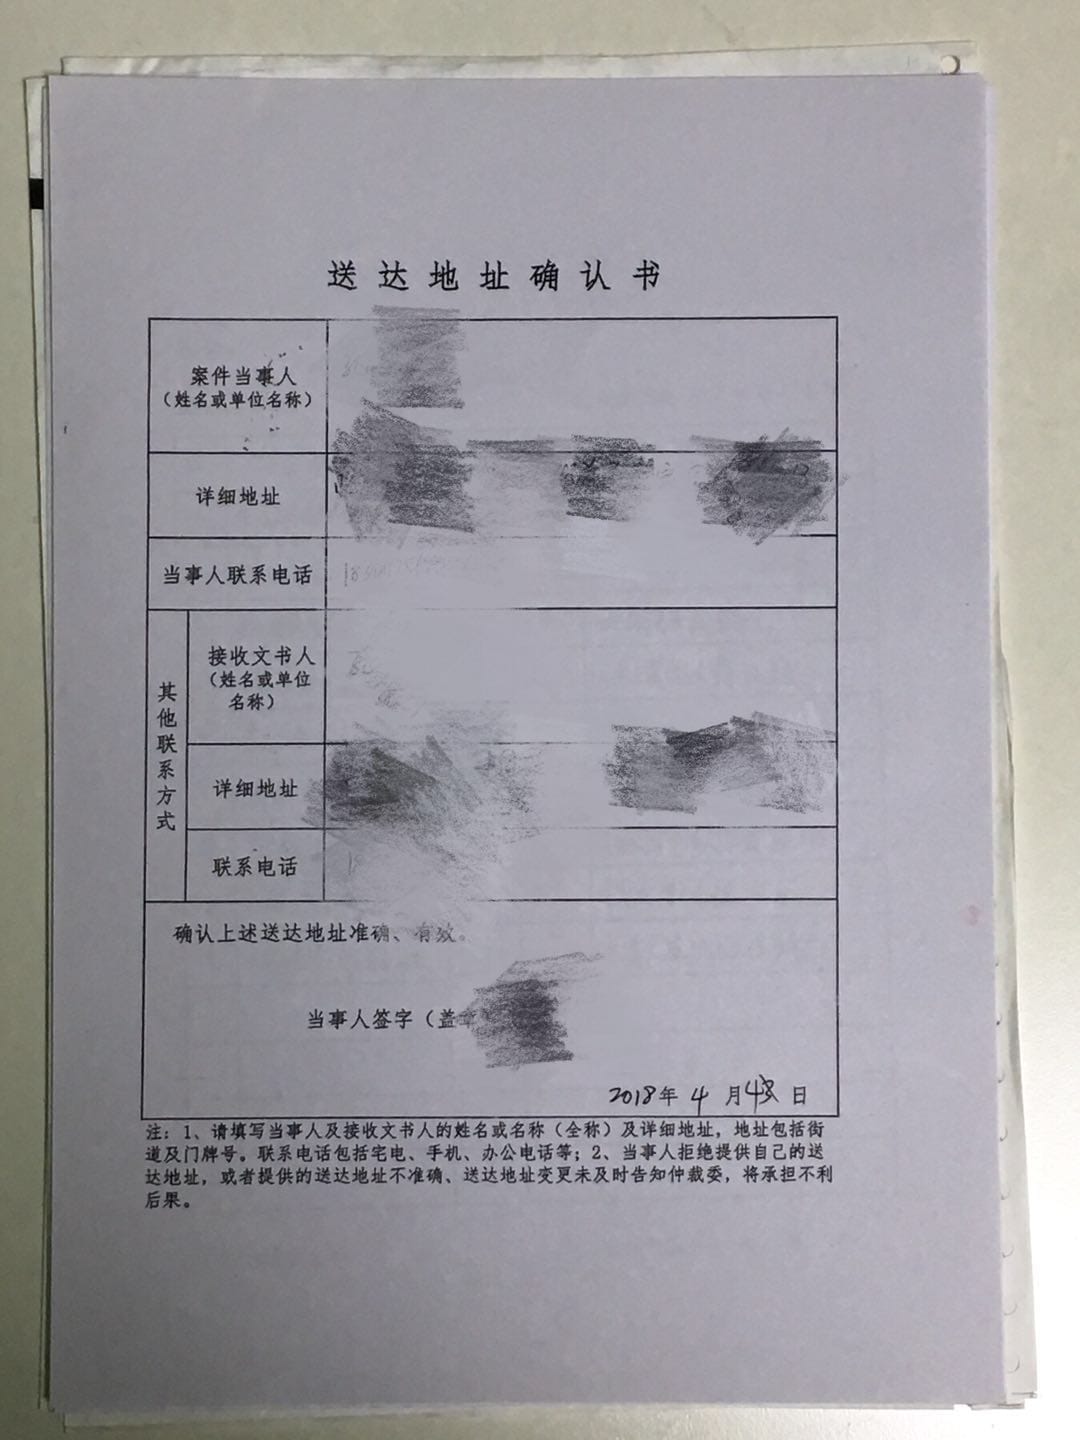 送达地址确认书
案件当事人
（姓名或单位名称）
详细地址
当事人联系电话
其他联系方式
接收文书人
（姓名或单位
名称）
详细地址
联系电话
确认上述送达地址准确、有效。
当事人签字（盖章
2018年 4 月 日
注：1、请填写当事人及接收文书人的姓名或名称（全称）及详细地址，地址包括街
道及门牌号。联系电话包括宅电、手机、办公电话等；2、当事人拒绝提供自己的送
达地址，或者提供的送达地址不准确、送达地址变更未及时告知仲裁委，将承担不利
后果。